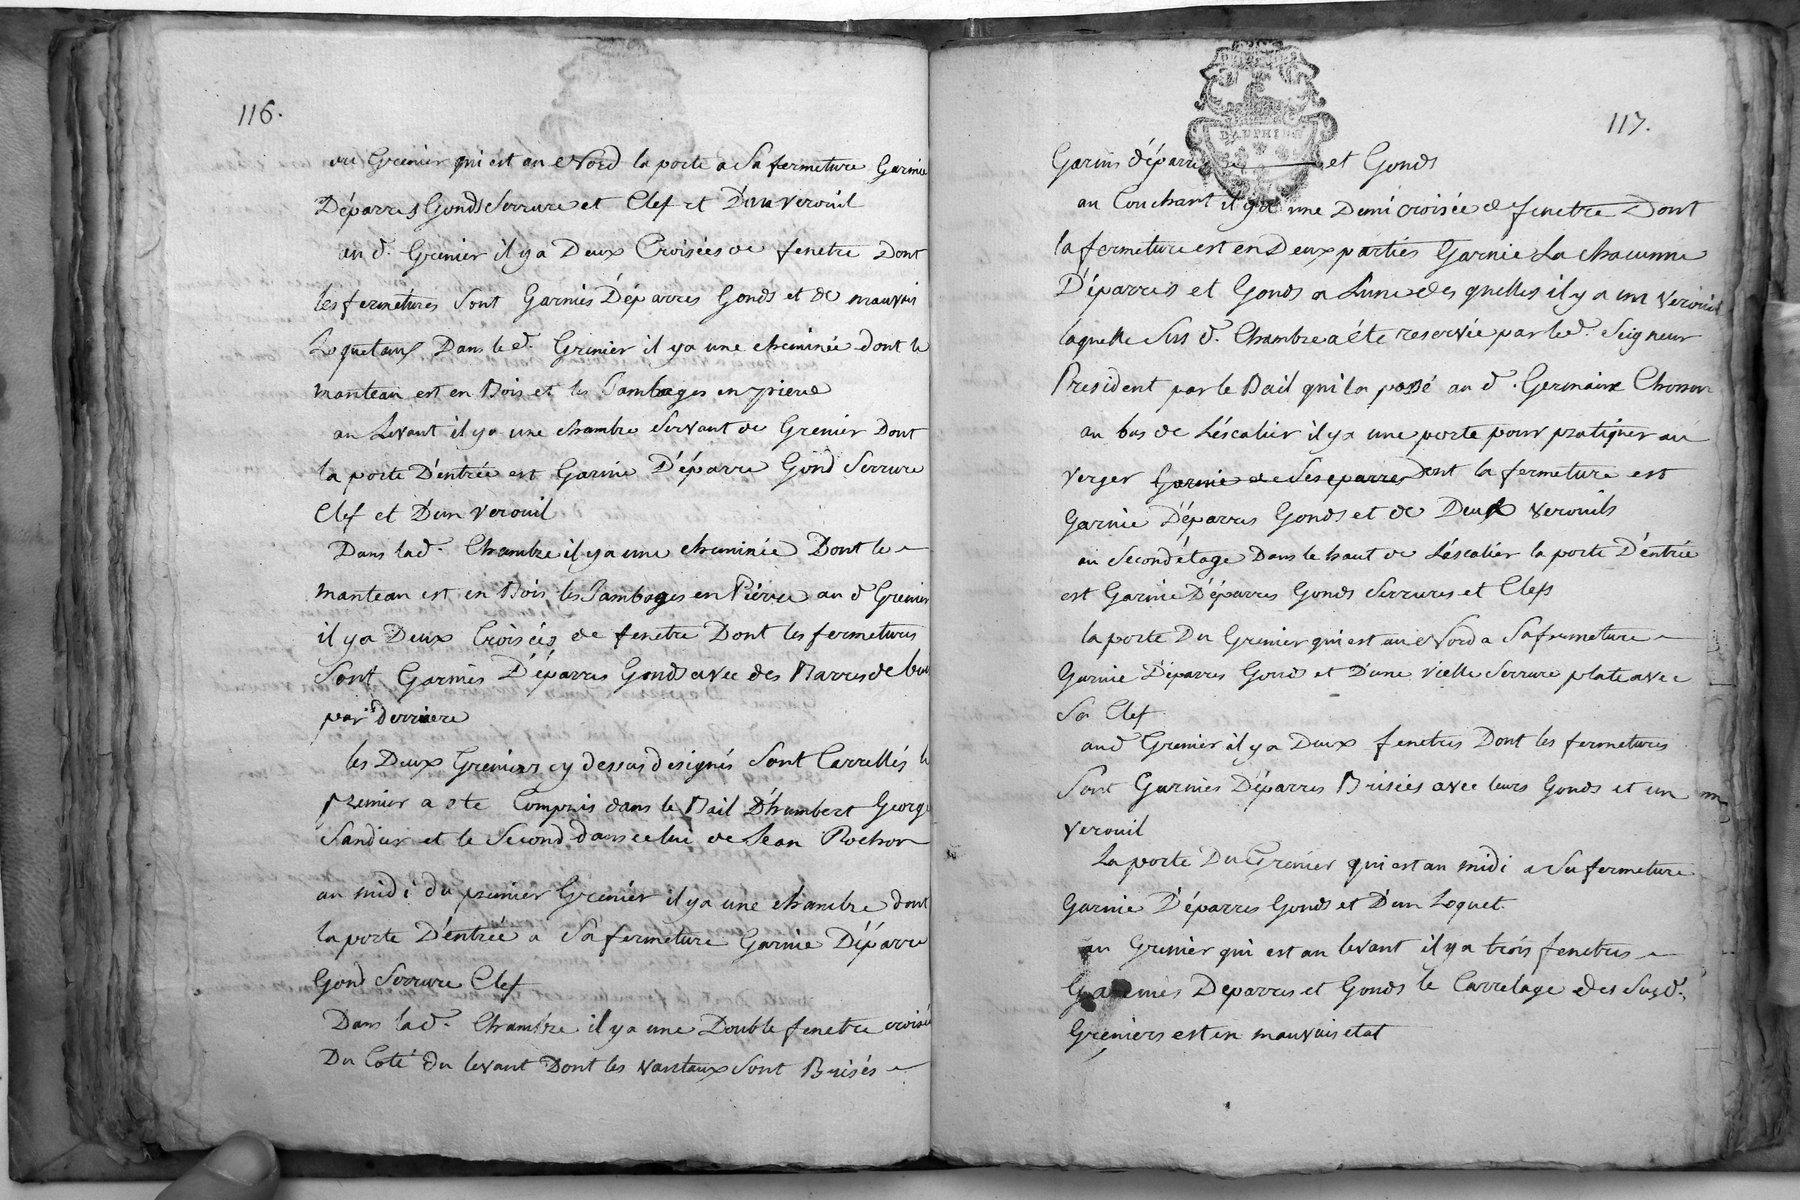 116.
au Grenier qui est au Nord la porte a Sa fermeture Garnie
D'éparres Gonds Serrure et Clef et D'un verouil
au d. Grenier il y a Deux Croisées de fenetre Dont
les fermetures Sont Garnies D'éparres Gonds et de mauvais
Loquetaux Dans le d. Grenier il y a une cheminée dont le
manteau est en Bois et les Jambages en pierre
au Levant il y a une chambre Servant de Grenier Dont
la porte D'entrée est Garnie D'éparre Gond Serrure
Clef et D'un verouil
Dans lad. Chambre il y a une cheminée Dont le
manteau est en Bois les Jambages en Pierre au d Grenier
il y a Deux Croisées de fenetre Dont les fermetures
Sont Garnies D'éparres Gonds avec des Barres de bois
par Derriere
les Deux Greniers cy dessus designés Sont Carrellés le
premier a ete Compris dans le Bail D'humbert George
Sandier et le Second dans celui de Jean Rochon
au midi du premier Grenier il y a une chambre dont
la porte D'entrée a Sa fermeture Garnie D'éparre
Gond Serrure Clef
Dans lad. Chambre il y a une Double fenetre croisée
Du Coté du levant Dont les vantaux Sont Brisés
117.
DAUPHINE
Garnis d'éparres et Gonds
au Couchant il y a une Demi croisée de fenetre Dont
la fermeture est en Deux parties Garnie La chacunne
D'éparres et Gonds a Lune des quelles il y a un verouil
laquelle Sus d. Chambre a été reservée par le d. Seigneur
President par le Bail qu'il a passé au d. Germaine Chosson
au bas de L'éscalier il y a une porte pour pratiquer au
verger Garnie de Ses eparres Dont la fermeture est
Garnie D'éparres Gonds et de Deux verouils
au Second étage Dans le haut de L'éscalier la porte D'entrée
est Garnie D'éparres Gonds Serrures et Clefs
la porte Du Grenier qui est au Nord a Sa fermeture
Garnie D'éparres Gonds et D'une vielle Serrure plate avec
Sa Clef
au d Grenier il y a Deux fenetres Dont les fermetures
Sont Garnies D'éparres Brisées avec leurs Gonds et un
verouil
La porte Du Grenier qui est au midi a Sa fermeture
Garnie D'éparres Gonds et D'un Loquet
au Grenier qui est au levant il y a trois fenetres
Garnies Deparres et Gonds le Carrelage des Susd.
Greniers est en mauvais etat